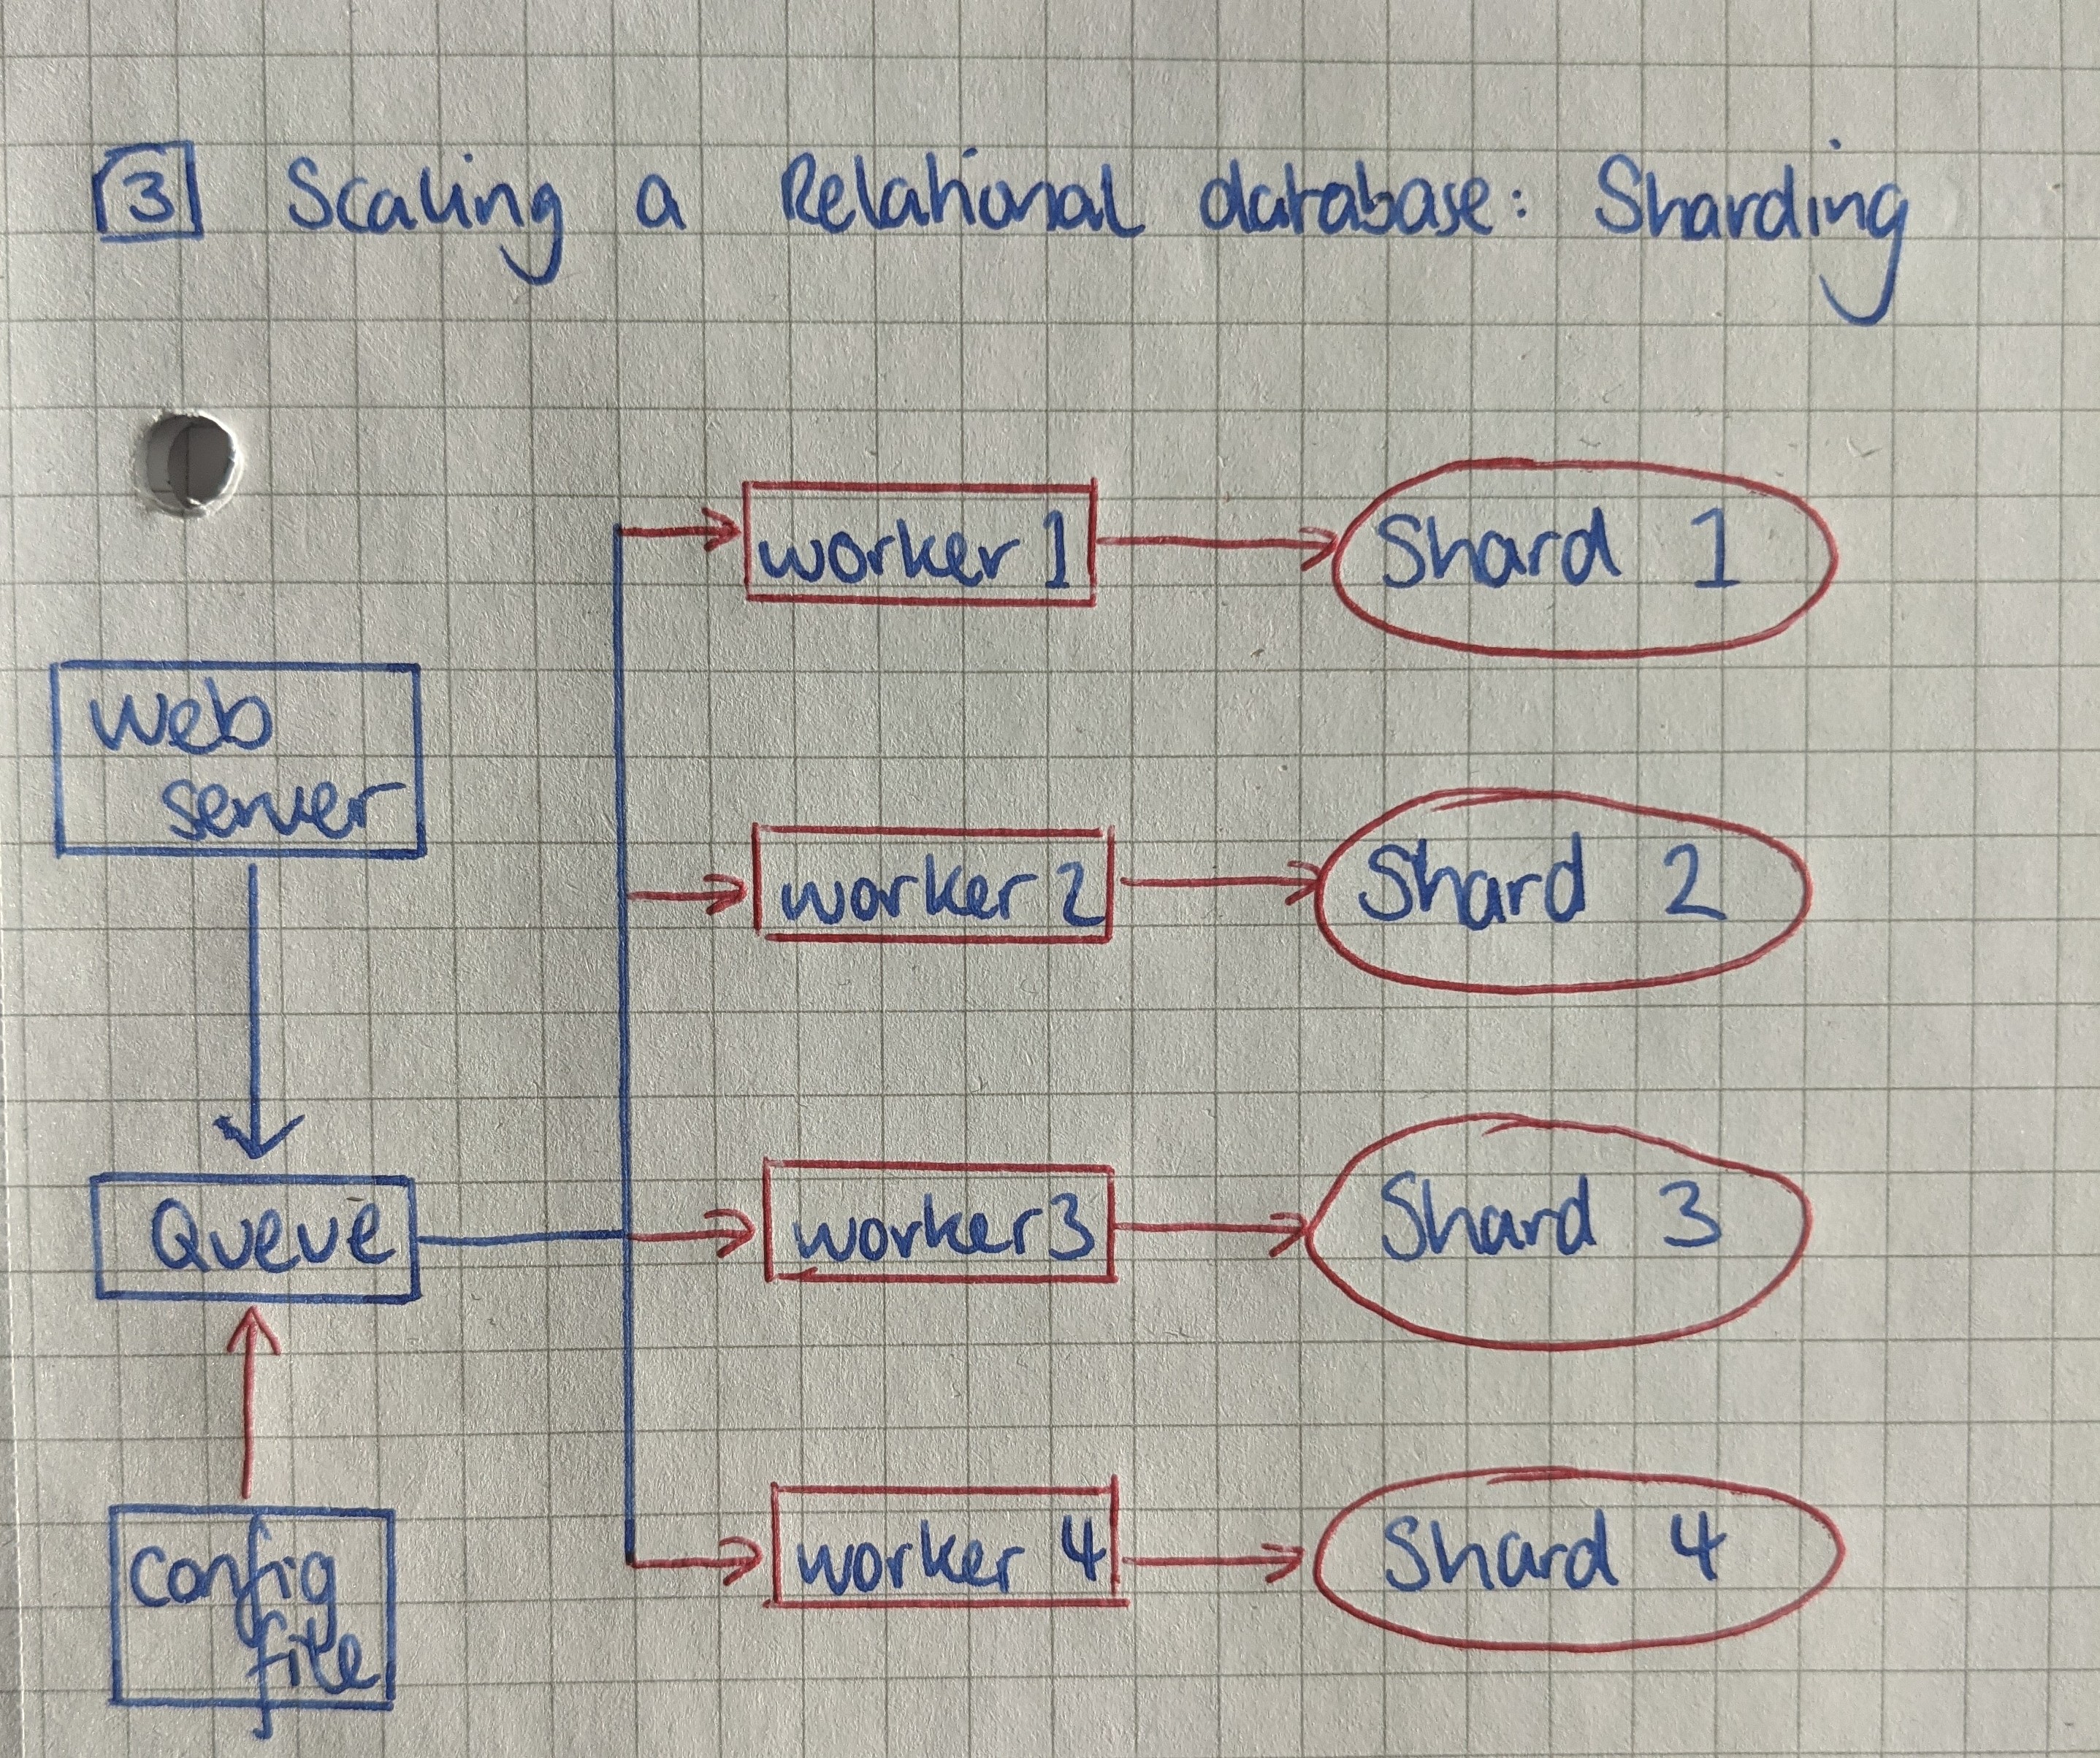 3 Scaling a Relational database: Sharding
worker 1
Shard 1
Web
server
worker 2
Shard 2
Queue
worker 3
Shard 3
Config
file
worker 4
Shard 4